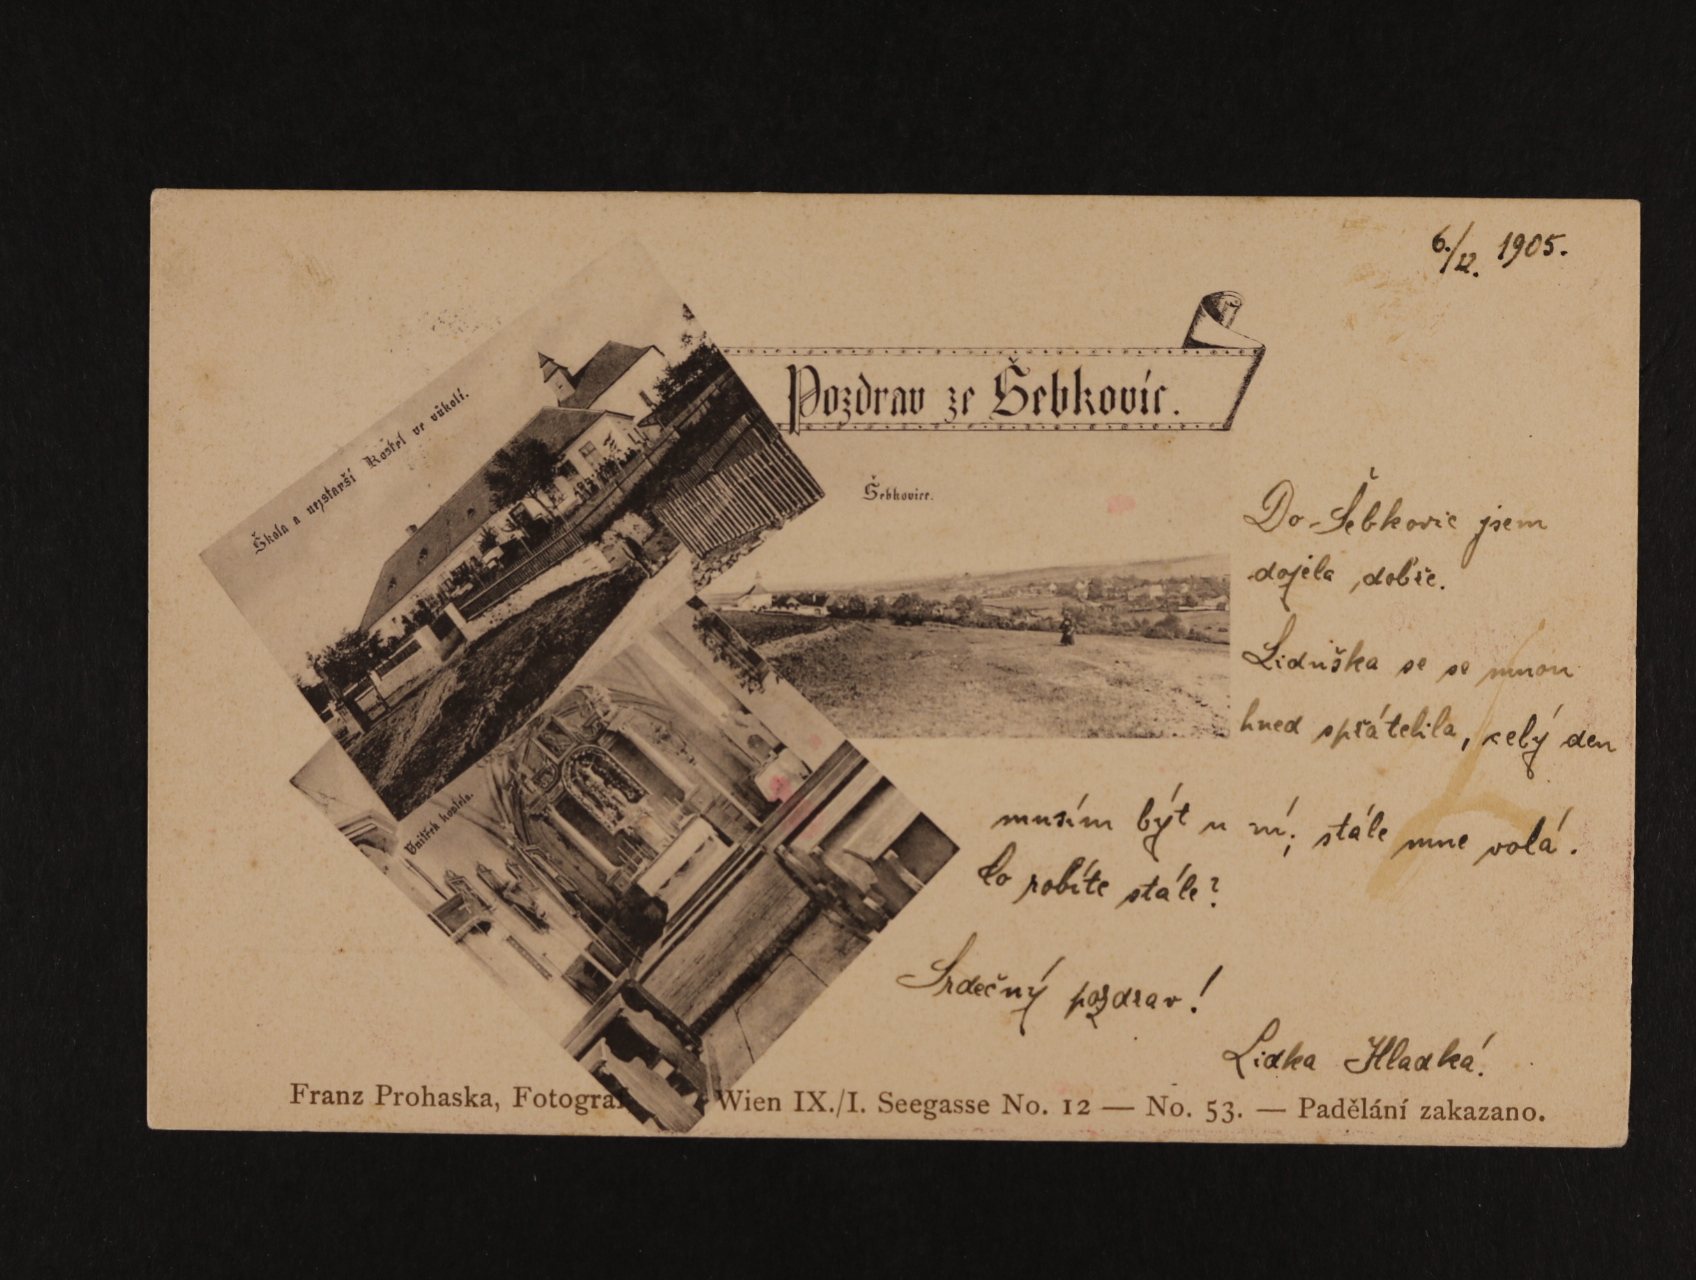 6./12. 1905.
Pozdrav ze Šebkovic.
Škola a nejstarší Kostel ve vůkolí.
Šebkovice.
Do Šebkovic jsem
dojela dobře.
Liduška se se mnou
hned spřátelila, celý den
musím být u ní; stále mne volá.
Co robíte stále?
Srdečný pozdrav!
Lidka Hladká.
Vnitřek kostela.
Franz Prohaska, Fotograf Wien IX./I. Seegasse No. 12 — No. 53. — Padělání zakazano.